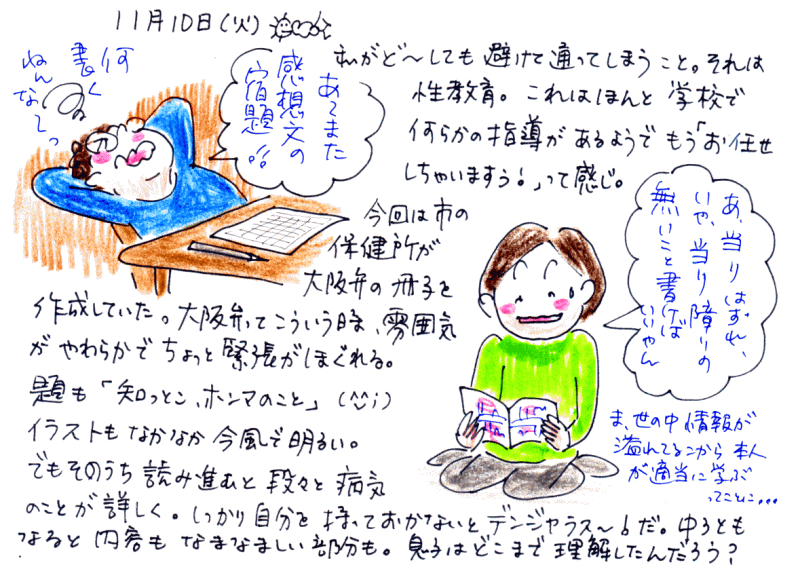 11月10日(火)
私がど〜しても避けて通ってしまうこと。それは
性教育。これはほんと学校で
何らかの指導があるようでもう「お任せ
しちゃいますぅ!」って感じ。
あ〜また
感想文の
宿題…
何
書く
ねんな〜っ
今回は市の
保健所が
大阪弁の冊子を
作成していた。大阪弁ってこういう時、雰囲気
がやわらかでちょっと緊張がほぐれる。
題も「知っとこ、ホンマのこと」(^^;)
イラストもなかなか今風で明るい。
でもそのうち読み進むと段々と病気
のことが詳しく。しっかり自分を持っておかないとデンジャラス〜6だ。中3とも
なると内容もなまなましい部分も。息子はどこまで理解したんだろう?
あ、当りはずれ、
いや、当り障りの
無いこと書けば
いいやん
ま、世の中情報が
溢れてるこから本人
が適当に学ぶ
ってことに...